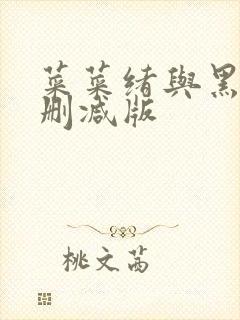 菜菜绪與黑
删减版
桃文茜